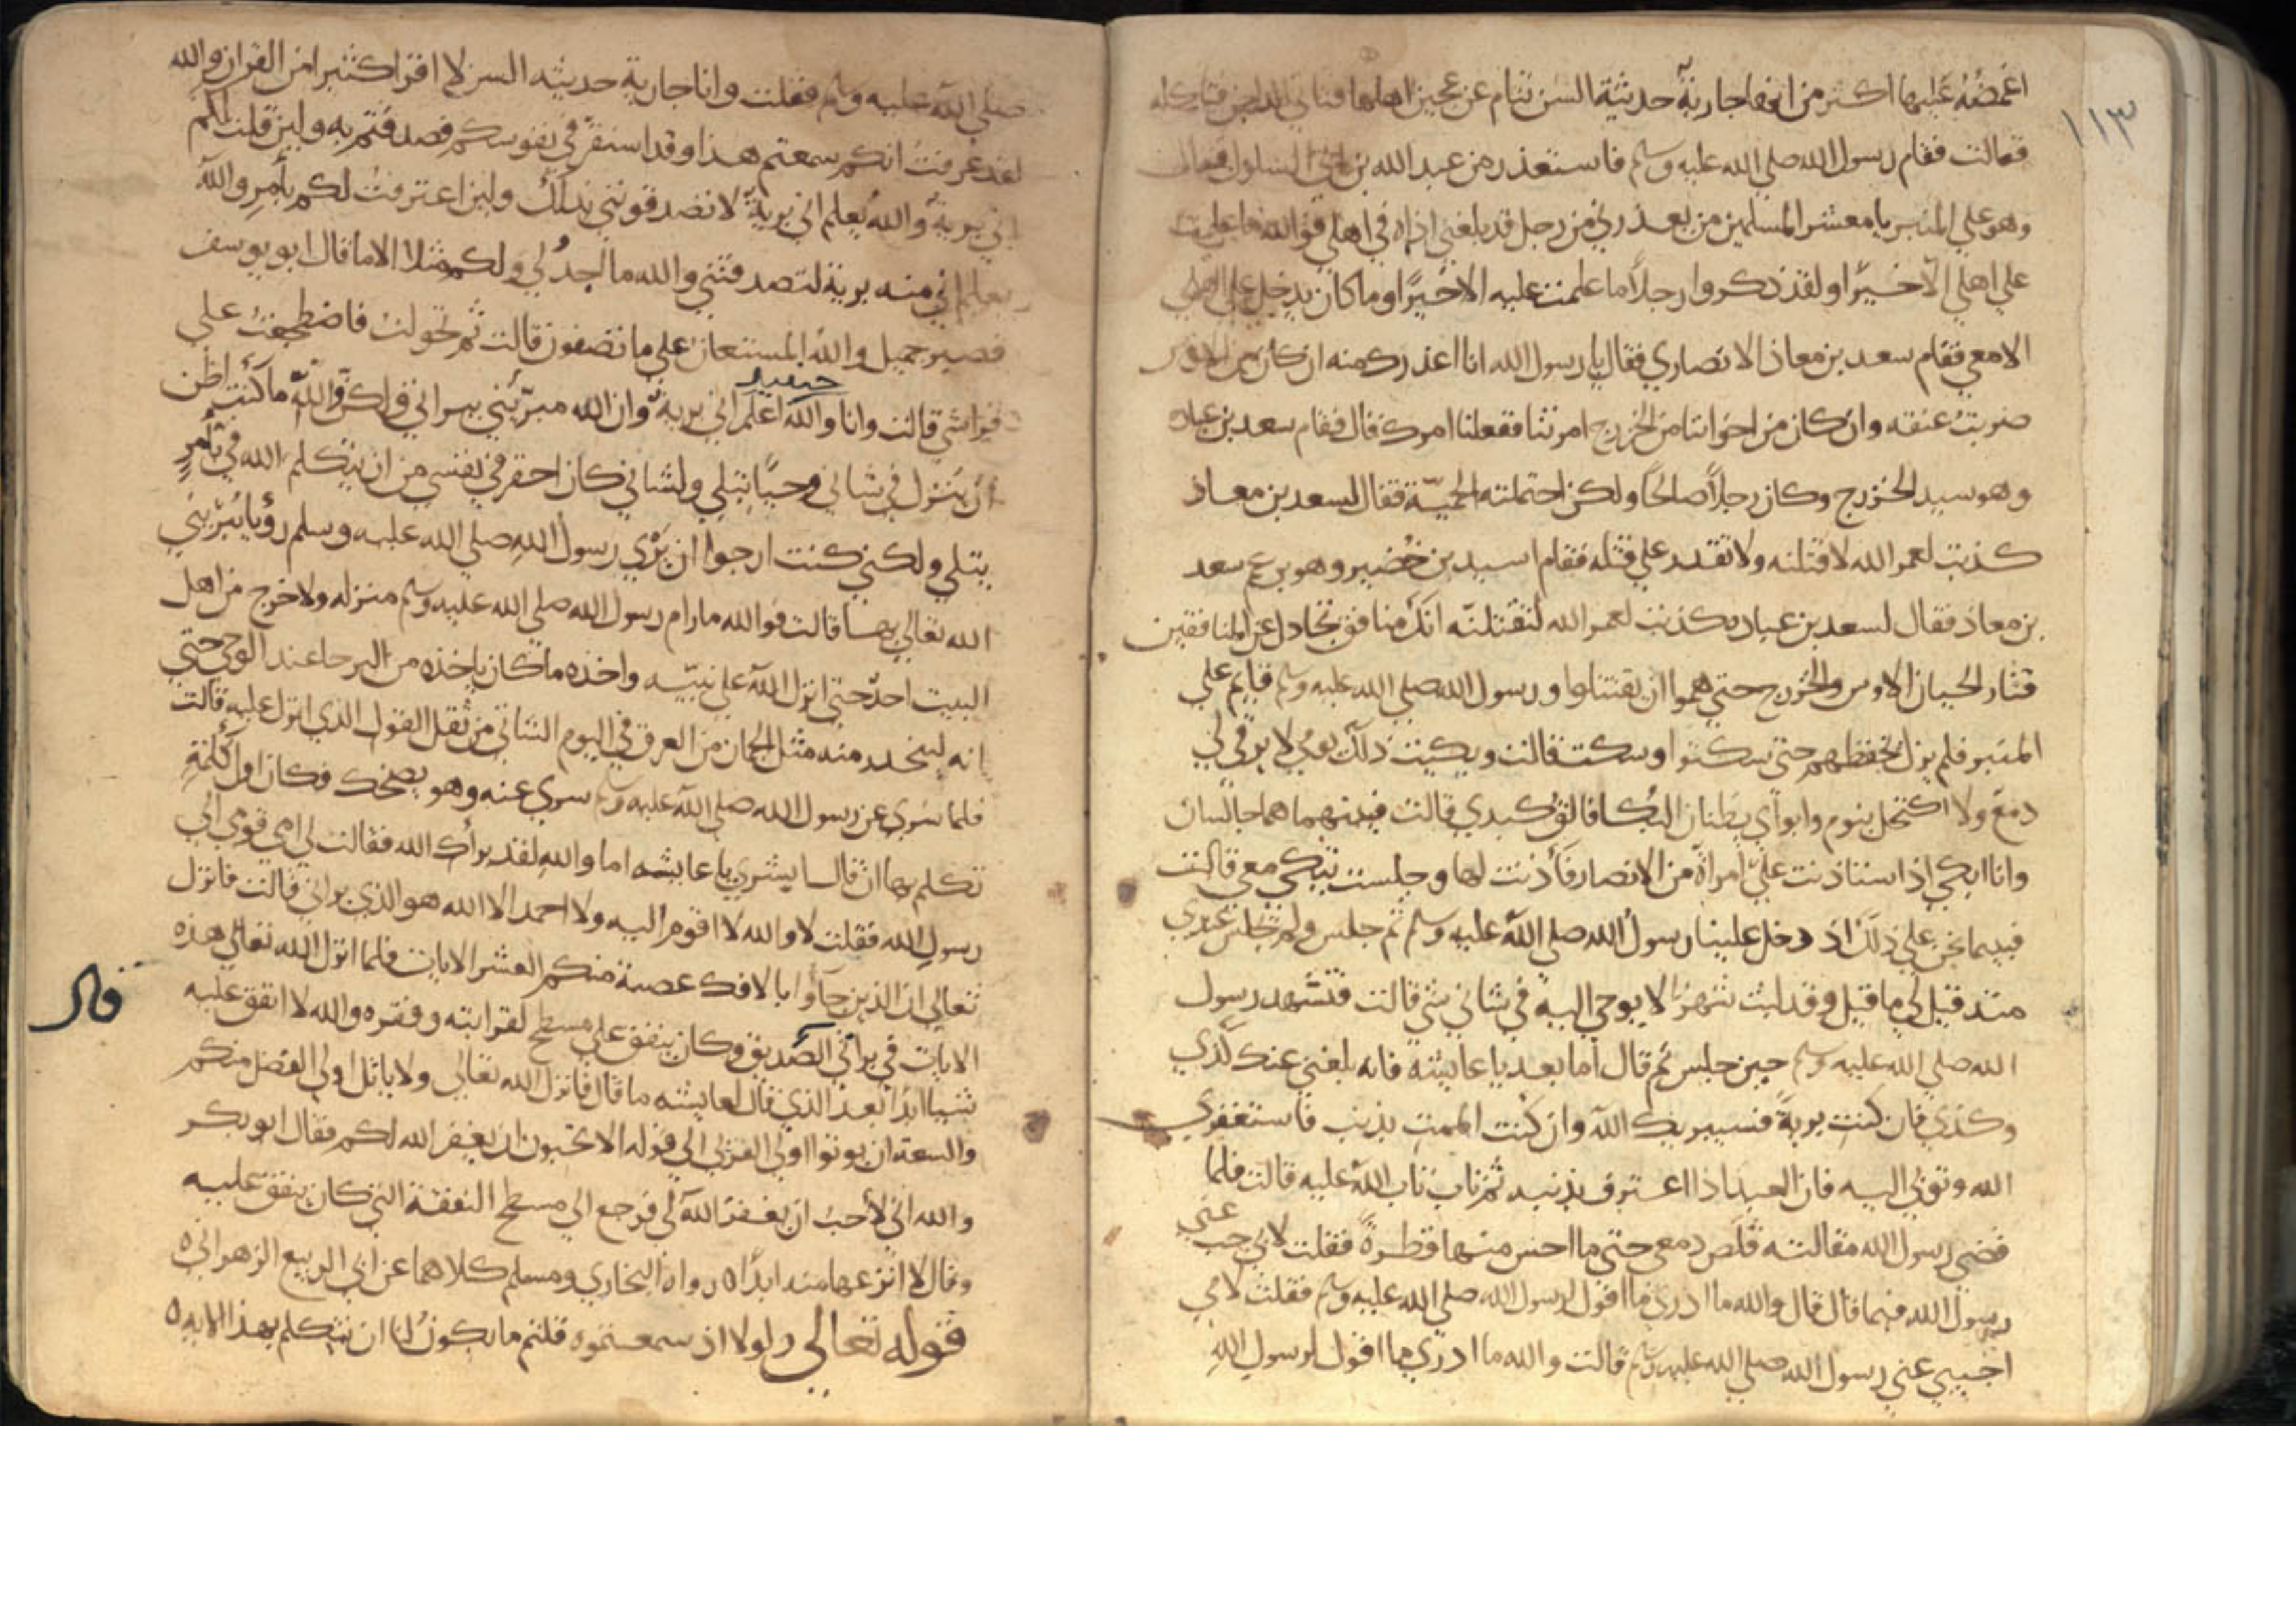 ١١٣
اغمضه عليها اكثر من انها جارية حديثة السن تنام عن عجين اهلها فتاتي الداجن فتاكله
فقالت فقام رسول الله صلى الله عليه وسلم فاستعذر من عبد الله بن ابي السلول فقال
وهو علي المنبر يا معشر المسلمين من يعذرني من رجل قد بلغني اذاه في اهلي فوالله ما علمت
علي اهلي الا خيرًا ولقد ذكروا رجلاً ما علمت عليه الا خيرًا وما كان يدخل علي اهلي
الا معي فقام سعد بن معاذ الانصاري فقال يا رسول الله انا اعذرك منه ان كان من الاوس
ضربتُ عنقه وان كان من اخواننا من الخزرج امرتنا ففعلنا امرك قال فقام سعد بن عباده
وهو سيد الخزرج وكان رجلاً صالحًا ولكن احتملته الحميّة فقال لسعد بن معاذ
كذبت لعمر الله لا تقتلنه ولا تقدر علي قتله فقام اسيد بن حُضير وهو بن عم سعد
بن معاذ فقال لسعد بن عباده كذبت لعمر الله لنقتلنّه انك منافق تجادل عن المنافقين
فثار الحيان الاوس والخزرج حتي هموا ان يقتتلوا ورسول الله صلي الله عليه وسلم قايم علي
المنبر فلم يزل يخفظهم حتي سكتوا وسكت قالت وبكيت ذلك يومي لا يرقي لي
دمع ولا اكتحل بنوم وابواي يظنان البكا فالق كبدي قالت فبينهما هما جالسان
وانا ابكي اذ استاذنت عليّ امراة من الانصار فأذنت لها وجلست تبكي معي قالت
فبينما نحن علي ذلك اذ دخل علينا رسول الله صلي الله عليه وسلم ثم جلس ولم يجلس عندي
منذ قيل لي ما قيل وقد لبث شهرًا لا يوحي اليه في شاني شي قالت فتشهد رسول
الله صلي الله عليه وسلم حين جلس ثم قال اما بعد يا عايشه فانه بلغني عنك كذي
وكذي فان كنت برية فسيبريك الله وان كنت الممت بذنب فاستغفري
الله وتوبي اليه فان العبد اذا اعترف بذنبه ثم تاب تاب الله عليه قالت فلما
قضي رسول الله مقالته قلص دمعي حتي ما احس منها قطرةً فقلت لابي جب عني
رسول الله فيما قال قال والله ما ادري ما اقول لرسول الله صلي الله عليه وسلم فقلت لامي
اجيبي عني رسول الله صلي الله عليه وسلم قالت والله ما ادري ما اقول لرسول اللهِ
صلي الله عليه وسلم فقلت وانا جارية حديثه السن لا اقرا كثيرا من القران والله
لقد عرفتُ انكم سمعتم هذا وقد استقرّ في نفوسكم فصدقتم به ولين قلت لكم
اني برية والله يعلم اني برية لا تصدقونني بذلك ولين اعترفت لكم بأمرٍ والله
يعلم اني منه برية لتصدقنني والله ما اجدُ لي ولكم مثلا الا ما قال ابو يوسف
فصبر جميل والله المستعان علي ما تصفون قالت ثم تحولت فاضطجعت علي
فراشي قالت وانا والله حينيذ اعلم اني برية وان الله مبرّئني ببراني ولكن والله ما كنت اظن
ان ينزل في شاني وحيًا يتلي ولشاني كان احقر في نفسي من ان يتكلم الله فيّ بأمرٍ
يتلي ولكني كنت ارجوا ان يَرْي رسول الله صلي الله عليه وسلم رؤيا يُبرّيني
الله تعالي بها قالت فوالله ما رام رسول الله صلي الله عليه وسلم منزله ولا خرج من اهل
البيت احدٌ حتي انزل الله علي نبيّه واخذه ما كان ياخذه من البرحا عند الوحي حتي
انه ليتحدر منه مثل الجمان من العرق في اليوم الشاتي من ثقل القول الذي انزل عليه قالت
فلما سُري عن رسول الله صلي الله عليه وسلم سري عنه وهو يضحك فكان اول كلمةٍ
تكلم بها ان قال ابشري يا عايشه اما والله لقد برأك الله فقالت لي امي قومي الي
رسول الله فقلت لا والله لا اقوم اليه ولا احمد الا الله هو الذي براني قالت فانزل
تعالي ان الذين جآوا بالافك عصبة منكم العشر الايات فلما انزل الله تعالي هذه
الايات في براتي الصديق وكان ينفق علي مسطح لقرابته وفقره والله لا انفق عليه
قال
شييا ابدًا بعد الذي قال لعايشه ما قال فانزل الله تعالي ولا ياتل اولي الفضل منكم
والسعة ان يوتوا اولي القربي الي قوله الا تحبون ان يغفر الله لكم فقال ابو بكر
والله اني لأحب ان يغفر الله لي فرجع الي مسطح النفقة التي كان ينفق عليه
وقال لا انزعها منه ابدًا ه رواه البخاري ومسلم كلاهما عن ابي الربيع الزهراني ه
قوله تعالي ولولا اذ سمعتموه قلتم ما يكون لنا ان نتكلم بهذا الايه ه